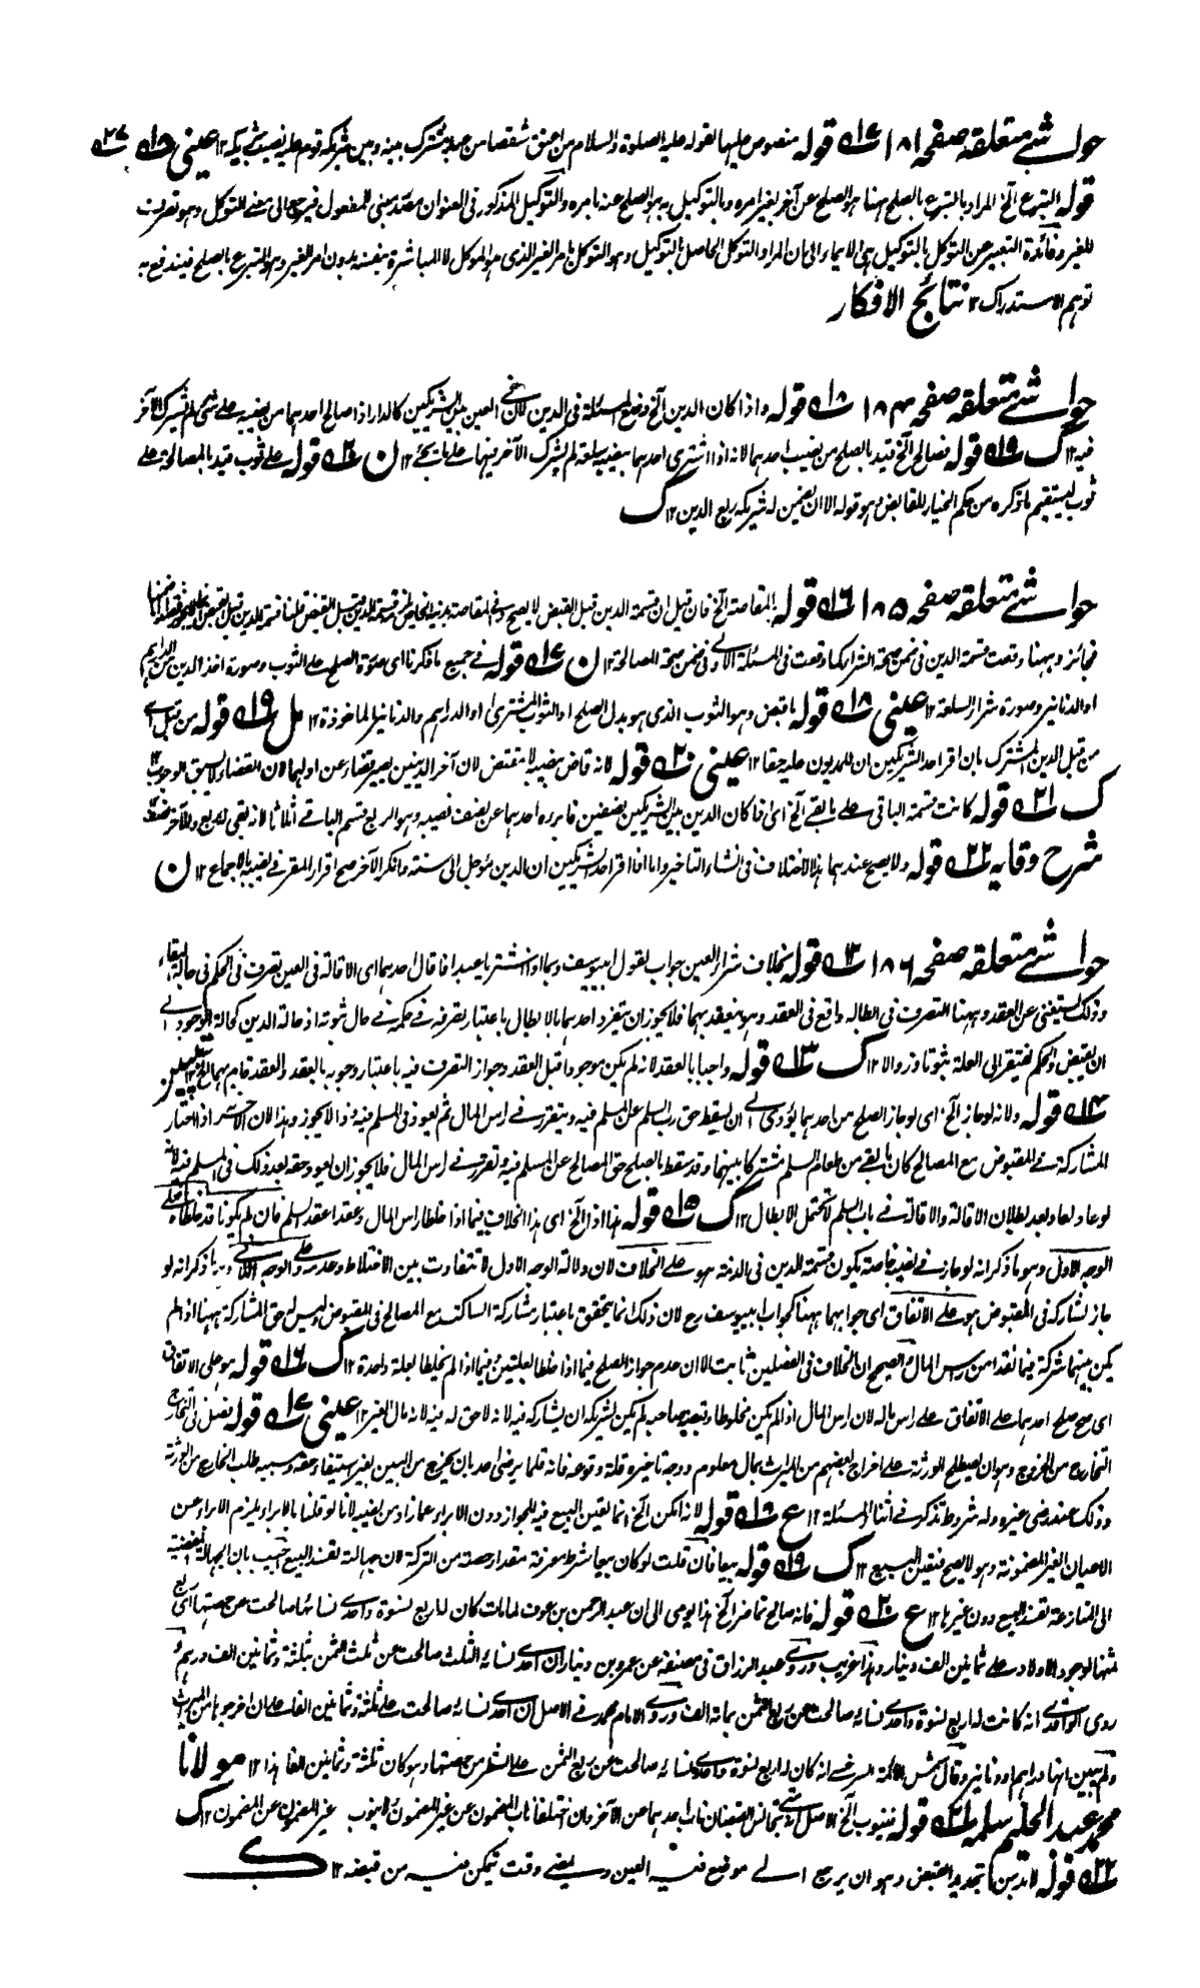 حواشي متعلقه صفحه ۱۸۱ ۱۷ قوله منصوص عليها لقوله عليه الصلوة والسلام من اعتق شقصا من عبد مشترك بينه وبين شريكه قوم عليه نصيب شريكه ۱۲ عيني ۱۸
قوله المتبرع الخ المراد بالمتبرع بالصلح ههنا هو الصلح عن آخر بغير امره وبالتوكيل به هو الصلح عنه بامره والتوكيل المذكور في العنوان مصدر مبني للمفعول فيرجع الى معنى التوكل وهو تصرف
للغير وفائدة التعبير عن التوكل بالتوكيل هي الايماء الى ان المراد التوكل الحاصل بالتوكيل وهو التوكل بامر الغير الذي هو الموكل لا المباشرة بنفسه بدون امر الغير وهو المتبرع بالصلح فيندفع به
توهم الاستدراك ۱۲ نتائج الافكار
حواشي متعلقه صفحه ۱۸۴ ۱۸ قوله واذا كان الدين الخ وضع المسئلة في الدين لان في العين بين الشريكين كالدار اذا صالح احدهما من نصيبه على شئ لم يشرك الآخر
فيه ۱۲ ك ۱۹ قوله فصالح الخ قيد بالصلح من نصيب احدهما لانه اذا اشترى احدهما بنصيبه سلعة لم يشرك الآخر فيها على ما يجئ ۱۲ ن ۲۰ قوله على ثوب قيد بالمصالحة على
ثوب ليستقيم ما ذكره من حكم الخيار للقابض وهو قوله الا ان يضمن له شريكه ربع الدين ۱۲ ك
حواشي متعلقه صفحه ۱۸۵ ۱۶ قوله بالمقاصة الخ فان قيل ان قسمة الدين قبل القبض لا يصح وفي المقاصة بدينه الخاص لزم قسمة الدين قبل القبض قلنا قسمة الدين قبل القبض انما لا يجوز قصدا اما ضمنا
فجائز وههنا وقعت قسمة الدين في ضمن صحة الشراء كما وقعت في المسئلة الاولى في ضمن صحة المصالحة ۱۲ ن ۱۷ قوله في جميع ما ذكرنا اى صورة الصلح على الثوب وصورة اخذ الدين من الدراهم
او الدنانير وصورة شراء السلعة ۱۲ عيني ۱۸ قوله ما قبض وهو الثوب الذي هو بدل الصلح او الثوب المشترى او الدراهم والدنانير الماخوذة ۱۲ مل ۱۹ قوله من قبل اى
من قبل الدين المشترك بان اقر احد الشريكين ان للمديون عليه حقا ۱۲ عيني ۲۰ قوله لانه قاض نصيبه لا مقتض لان آخر الدينين يصير قضاء عن اولهما لان القضاء لا يسبق الوجوب ۱۲
ك ۲۱ قوله كانت قسمة الباقي على ما بقى الخ اى اذا كان الدين بين الشريكين نصفين فابرءه احدهما عن نصف نصيبه وهو الربع قسم الباقي اثلاثا لانه بقى له ربع وللآخر نصف
شرح وقايه ۲۲ قوله ولا يصح عندهما هذا الاختلاف في انشاء التاخير واما اذا اقر احد الشريكين ان الدين مؤجل الى سنة وانكر الآخر صح اقرار المقر في نصيبه بالاجماع ۱۲ ن
حواشي متعلقه صفحه ۱۸۶ ۱۲ قوله بخلاف شراء العين جواب لقول ابي يوسف وبما اذا اشتريا عبدا فاقال احدهما اى الاقالة في العين تصرف في الحكم في حالة البقاء
وذلك يستغنى عن العقد وههنا التصرف في ابطاله واقع في العقد وهو منعقد بهما فلا يجوز ان ينفرد احدهما بالابطال باعتبار تصرفه في حكمه في حال ثبوته اذ حالة الدين كحالة الوجود الى
ان يقبض والحكم يفتقر الى العلة ثبوتا وزوالا ۱۲ ك ۱۳ قوله واجبا بالعقد لانه لم يكن موجودا قبل العقد وجواز التصرف فيه باعتبار وجوبه بالعقد والعقد قام بهما
۱۴ قوله ولانه لو جاز الخ اى لو جاز الصلح من احدهما يؤدي الى ان يسقط حق رب السلم عن المسلم فيه ويتقرر في راس المال ثم يعود في المسلم فيه وذا لا يجوز وهذا لان الآخر اذا اختار
المشاركة في المقبوض مع المصالح كان ما بقى من طعام السلم مشتركا بينهما وقد سقط بالصلح حق المصالح عن المسلم فيه وتقرر في راس المال فلا يجوز ان يعود حقه بعد ذلك في المسلم فيه لانه
لو عاد لعاد بعد بطلان الاقالة والاقالة في باب السلم لا تحتمل الابطال ۱۲ ك ۱۵ قوله هذا اذا الخ اى هذا الخلاف فيما اذا خلطا راس المال وعقدا عقد السلم فان لم يكونا قد خلطاه فعلى
الوجه الاول وهو ما ذكرانه لو جاز في نصيبه خاصة يكون قسمة للدين في الذمة هو على الخلاف لان دلالة الوجه الاول لا تتفاوت بين الاختلاط وعدمه وعلى الوجه الثاني وهو ما ذكرانه لو
جاز لشاركه في المقبوض هو على الاتفاق اى جوابهما ههنا كجواب ابي يوسف رح لان ذلك انما يتحقق باعتبار مشاركة الساكت مع المصالح في المقبوض وليس له حق المشاركة ههنا اذا لم
يكن بينهما شركة فيما نقدا من راس المال والصحيح ان الخلاف في الفصلين ثابت الا ان عدم جواز الصلح فيما اذا خلطا لعلتين وفيما اذا لم يخلطا لعلة واحدة ۱۲ ك ۱۶ قوله هو على الاتفاق
اى صح صلح احدهما على الاتفاق على راس ماله لان راس المال اذا لم يكن مخلوطا وقبضه صاحبه لم يكن لشريكه ان يشاركه فيه لانه لا حق له فيه لانه مال الغير ۱۲ عيني ۱۷ قوله فصل في التخارج
التخارج من الخروج وهو ان يصطلح الورثة على اخراج بعضهم من الميراث بمال معلوم ووجه تاخيره قلة وقوعه فانه قلما يرضى احد بان يخرج من البين بغير استيفاء حقه وسببه طلب الخارج من الورثة
وذلك عند رضى غيره وله شروط تذكر في اثناء المسئلة ۱۲ ع ۱۸ قوله لانه امكن الخ انما يتعين البيع فيه للجواز دون الابراء عما زاد من نصيبه لانا لو قلنا بالابراء يلزم الابراء عن
الاعيان الغير المضمونة وهو لا يصح فتعين البيع ۱۲ ك ۱۹ قوله بيعا فان قلت لو كان بيعا شرط معرفة مقدار حصته من التركة لان جهالته تفسد البيع اجيب بان الجهالة المفضية
الى المنازعة تفسد البيع دون غيرها ۱۲ ع ۲۰ قوله فانه صالح تماضر الخ هذا يومي الى ان عبد الرحمن بن عوف لما مات كان له اربع نسوة واحدى نسائه صالحت عن حصتها اى ربع
ثمنها لوجود الاولاد على ثمانين الف دينار وهذا غريب وروى عبد الرزاق في مصنفه عن عمرو بن دينار ان احدى نسائه الثلث صالحت عن ثلث الثمن بثلثة وثمانين الف درهم و
روى الواقدي انه كانت له اربع نسوة واحدى نسائه صالحت عن ربع الثمن بمائة الف وروى الامام محمد في الاصل ان احدى نسائه صالحت على ثلثة وثمانين الفا على ان اخرجوها من الميراث
ولم يبين انها دراهم او دنانير وقال شمس الائمة السرخسي انه كان له اربع نسوة واحدى نسائه صالحت عن ربع الثمن على الشطر من حصتها وهو كان ثلثة وثمانين الفا هذا ۱۲ مولانا
محمد عبد الحليم سلمه ۲۱ قوله فينوب الخ الاصل انه متى تجانس القبضان ناب احدهما عن الآخر وان اختلفا ناب المضمون عن غير المضمون ولا ينوب غير المضمون عن المضمون ۱۲ ك
۲۲ قوله لا بد من تجديد القبض وهو ان يرجع الى موضع فيه العين ويمضي وقت يتمكن فيه من قبضه ۱۲ ك